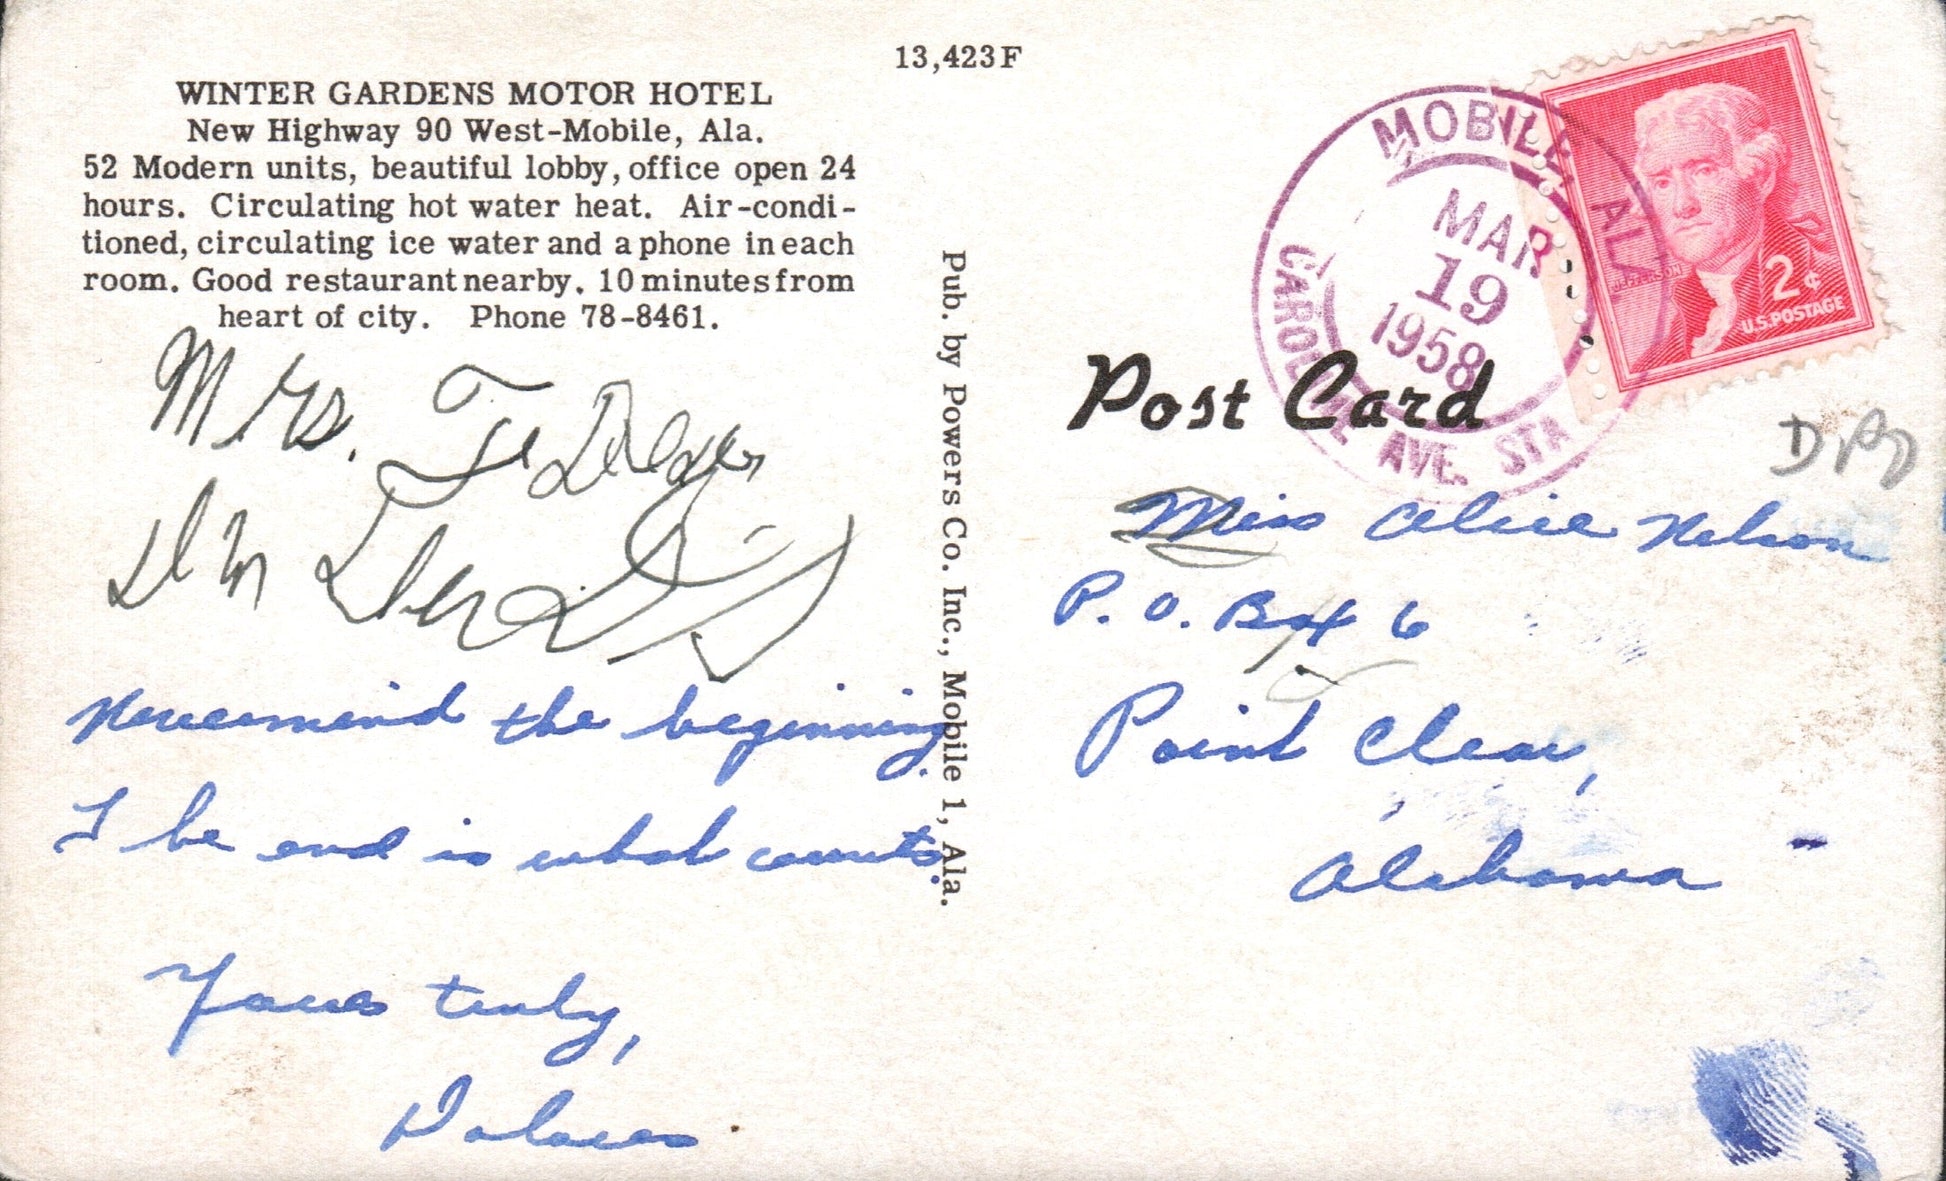 13,423F
WINTER GARDENS MOTOR HOTEL
New Highway 90 West-Mobile, Ala.
52 Modern units, beautiful lobby, office open 24
hours. Circulating hot water heat. Air-condi-
tioned, circulating ice water and a phone in each
room. Good restaurant nearby. 10 minutes from
heart of city. Phone 78-8461.
Mrs.
the beginning.
I be end is what counts.
Yours truly,
Pub. by Powers Co. Inc., Mobile 1, Ala.
Post Card
MOBILE, ALA.
MAR
19
1958
AVE. STA
JEFFERSON
2¢
U.S. POSTAGE
Miss Alice Nelson
P. O. Box 6
Point Clear,
Alabama